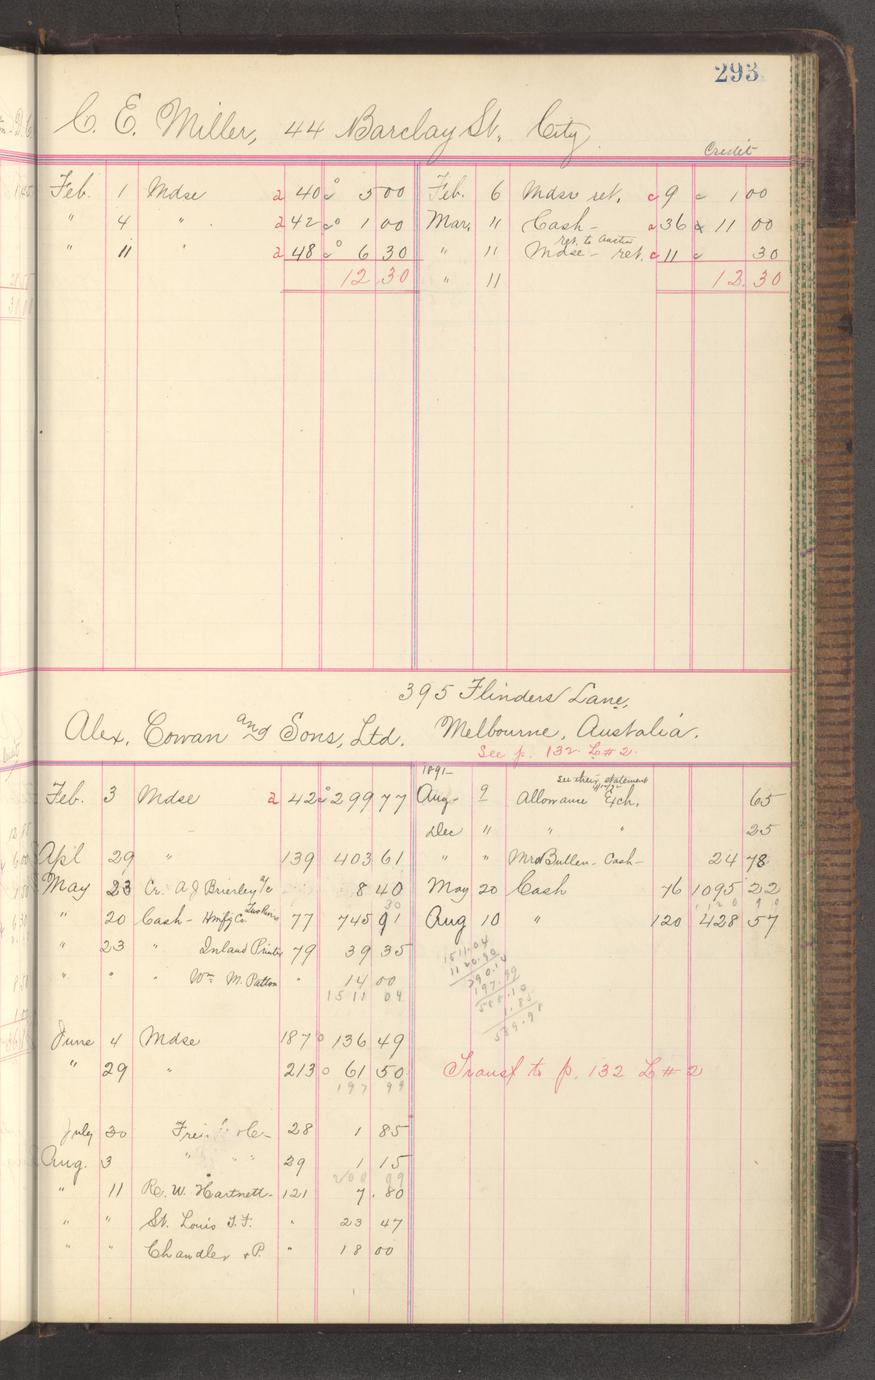 293
C. E. Miller, 44 Barclay St. City
Credit
Feb. 1 Mdse 2 40 5 00 Feb. 6 Mdse ret. c 9 1 00
" 4 " 2 42 1 00 Mar. 11 Cash - 2 36 11 00
" 11 " 2 48 6 30 " 11 Mdse - ret. c 11 30
12 30 " 11 12.30
395 Flinders Lane,
Alex. Cowan and Sons, Ltd. Melbourne, Austalia.
See p. 132 L # 2.
1891-
see their statement
Feb. 3 Mdse 2 42 299 77 Aug. 9 Allowance Exch. 65
Dec " " " 25
Apl 29 " 139 403 61 " " Mrs Bullen - Cash - 24 78
May 23 Cr. A J Brierley a/c 8 40 May 20 Cash 76 1095 22
30
" 20 Cash - Hmfg Co. 77 745 91 Aug 10 " 120 428 57
" 23 " Inland Printer 79 39 35
" " " Wm. M. Patton " 14 00
15 11 04
1511.04
1120.90
390.14
197.99
588.13
1.85
589.98
June 4 Mdse 187 136 49
" 29 " 213 61 50 Transf to p. 132 L # 2
197 99
July 30 28 1 85
Aug. 3 " " " 29 1 15
200 99
" 11 R. W. Hartnett - 121 7.80
" " St. Louis T. F. " 23 47
" " Chandler & P. " 18 00